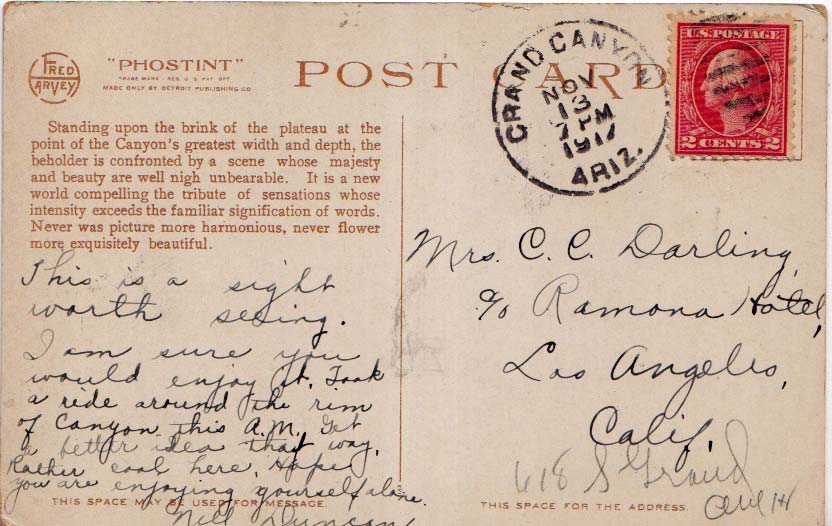 FRED
HARVEY
"PHOSTINT"
TRADE MARK REG. U.S. PAT. OFF.
MADE ONLY BY DETROIT PUBLISHING CO
POST CARD
GRAND CANYON
NOV
13
7 PM
1917
ARIZ.
U.S. POSTAGE
2 CENTS 2
Standing upon the brink of the plateau at the
point of the Canyon's greatest width and depth, the
beholder is confronted by a scene whose majesty
and beauty are well nigh unbearable. It is a new
world compelling the tribute of sensations whose
intensity exceeds the familiar signification of words.
Never was picture more harmonious, never flower
more exquisitely beautiful.
This is a sight
worth seeing.
I am sure you
would enjoy it. Took
a ride around the rim
of Canyon this A.M. Get
a better idea that way.
Rather cool here. Hope
you are enjoying yourself alone.
Nell Duncan
THIS SPACE MAY BE USED FOR MESSAGE.
Mrs. C. C. Darling,
c/o Ramona Hotel,
Los Angeles,
Calif.
618 S Grand
THIS SPACE FOR THE ADDRESS.